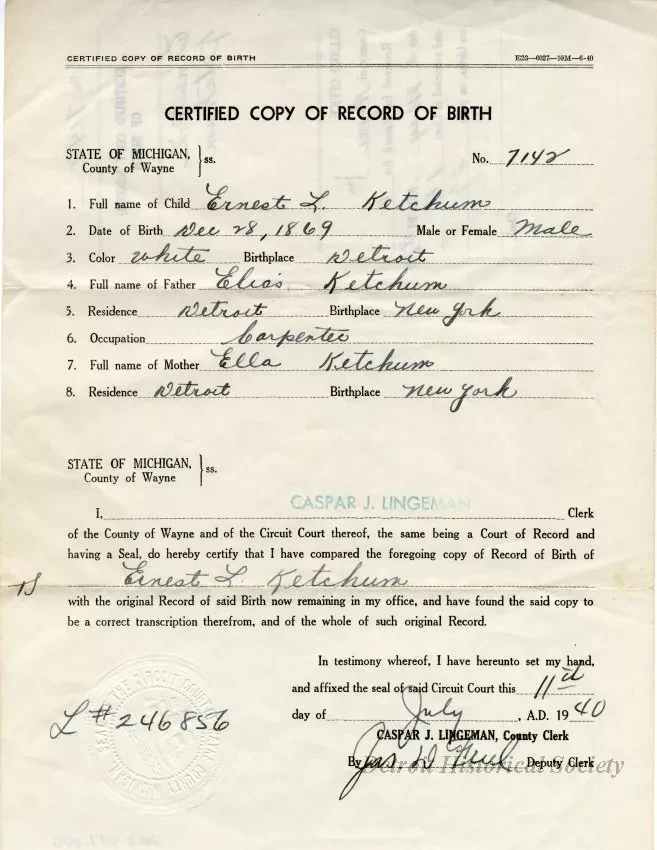 CERTIFIED COPY OF RECORD OF BIRTH E23—6027—10M—6-40
CERTIFIED COPY OF RECORD OF BIRTH
STATE OF MICHIGAN, } ss. No. 7142
County of Wayne
1. Full name of Child Ernest L. Ketchum
2. Date of Birth Dec 28, 1869 Male or Female Male
3. Color White Birthplace Detroit
4. Full name of Father Elias Ketchum
5. Residence Detroit Birthplace New York
6. Occupation Carpenter
7. Full name of Mother Ella Ketchum
8. Residence Detroit Birthplace New York
STATE OF MICHIGAN, } ss.
County of Wayne
I, CASPAR J. LINGEMAN Clerk
of the County of Wayne and of the Circuit Court thereof, the same being a Court of Record and
having a Seal, do hereby certify that I have compared the foregoing copy of Record of Birth of
Ernest L. Ketchum
with the original Record of said Birth now remaining in my office, and have found the said copy to
be a correct transcription therefrom, and of the whole of such original Record.
In testimony whereof, I have hereunto set my hand,
and affixed the seal of said Circuit Court this 11th
day of July, A.D. 1940
L # 246856
CASPAR J. LINGEMAN, County Clerk
By Deputy Clerk
Detroit Historical Society